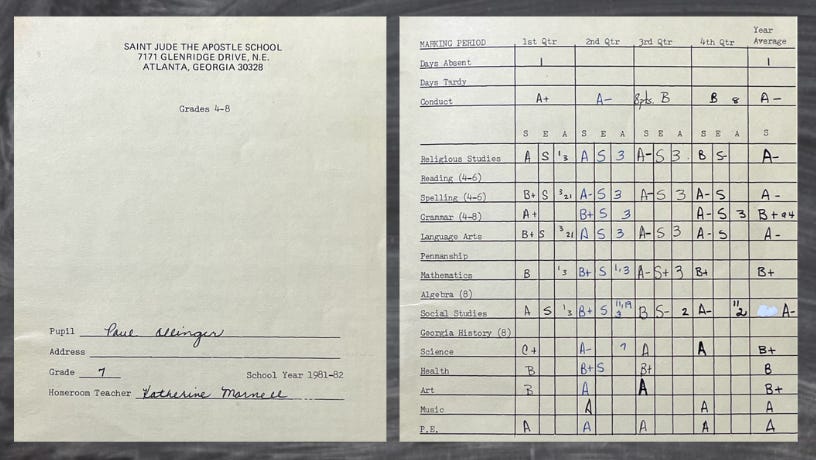 SAINT JUDE THE APOSTLE SCHOOL
7171 GLENRIDGE DRIVE, N.E.
ATLANTA, GEORGIA 30328
Grades 4-8
Pupil Paul
Address
Grade 7 School Year 1981-82
Homeroom Teacher Katherine Marnell
Year
MARKING PERIOD 1st Qtr 2nd Qtr 3rd Qtr 4th Qtr Average
Days Absent 1 1
Days Tardy
Conduct A+ A- 8pts. B B 8 A-
S E A S E A S E A S E A S
Religious Studies A S 1 3 A S 3 A- S 3 B S- A-
Reading (4-6)
Spelling (4-6) B+ S 3 21 A- S 3 A- S 3 A- S A-
Grammar (4-8) A+ B+ S 3 A- S 3 B+
Language Arts B+ S 3 21 A S 3 A- S 3 A- S A-
Penmanship
Mathematics B 1 3 B+ S 1,3 A- S+ 3 B+ B+
Algebra (8)
Social Studies A S 1 3 B+ S 11,19 3 B S- 2 A- 11 2 A-
Georgia History (8)
Science C+ A- 7 A A B+
Health B B+ S B+ B
Art B A A B+
Music A A A
P.E. A A A A A